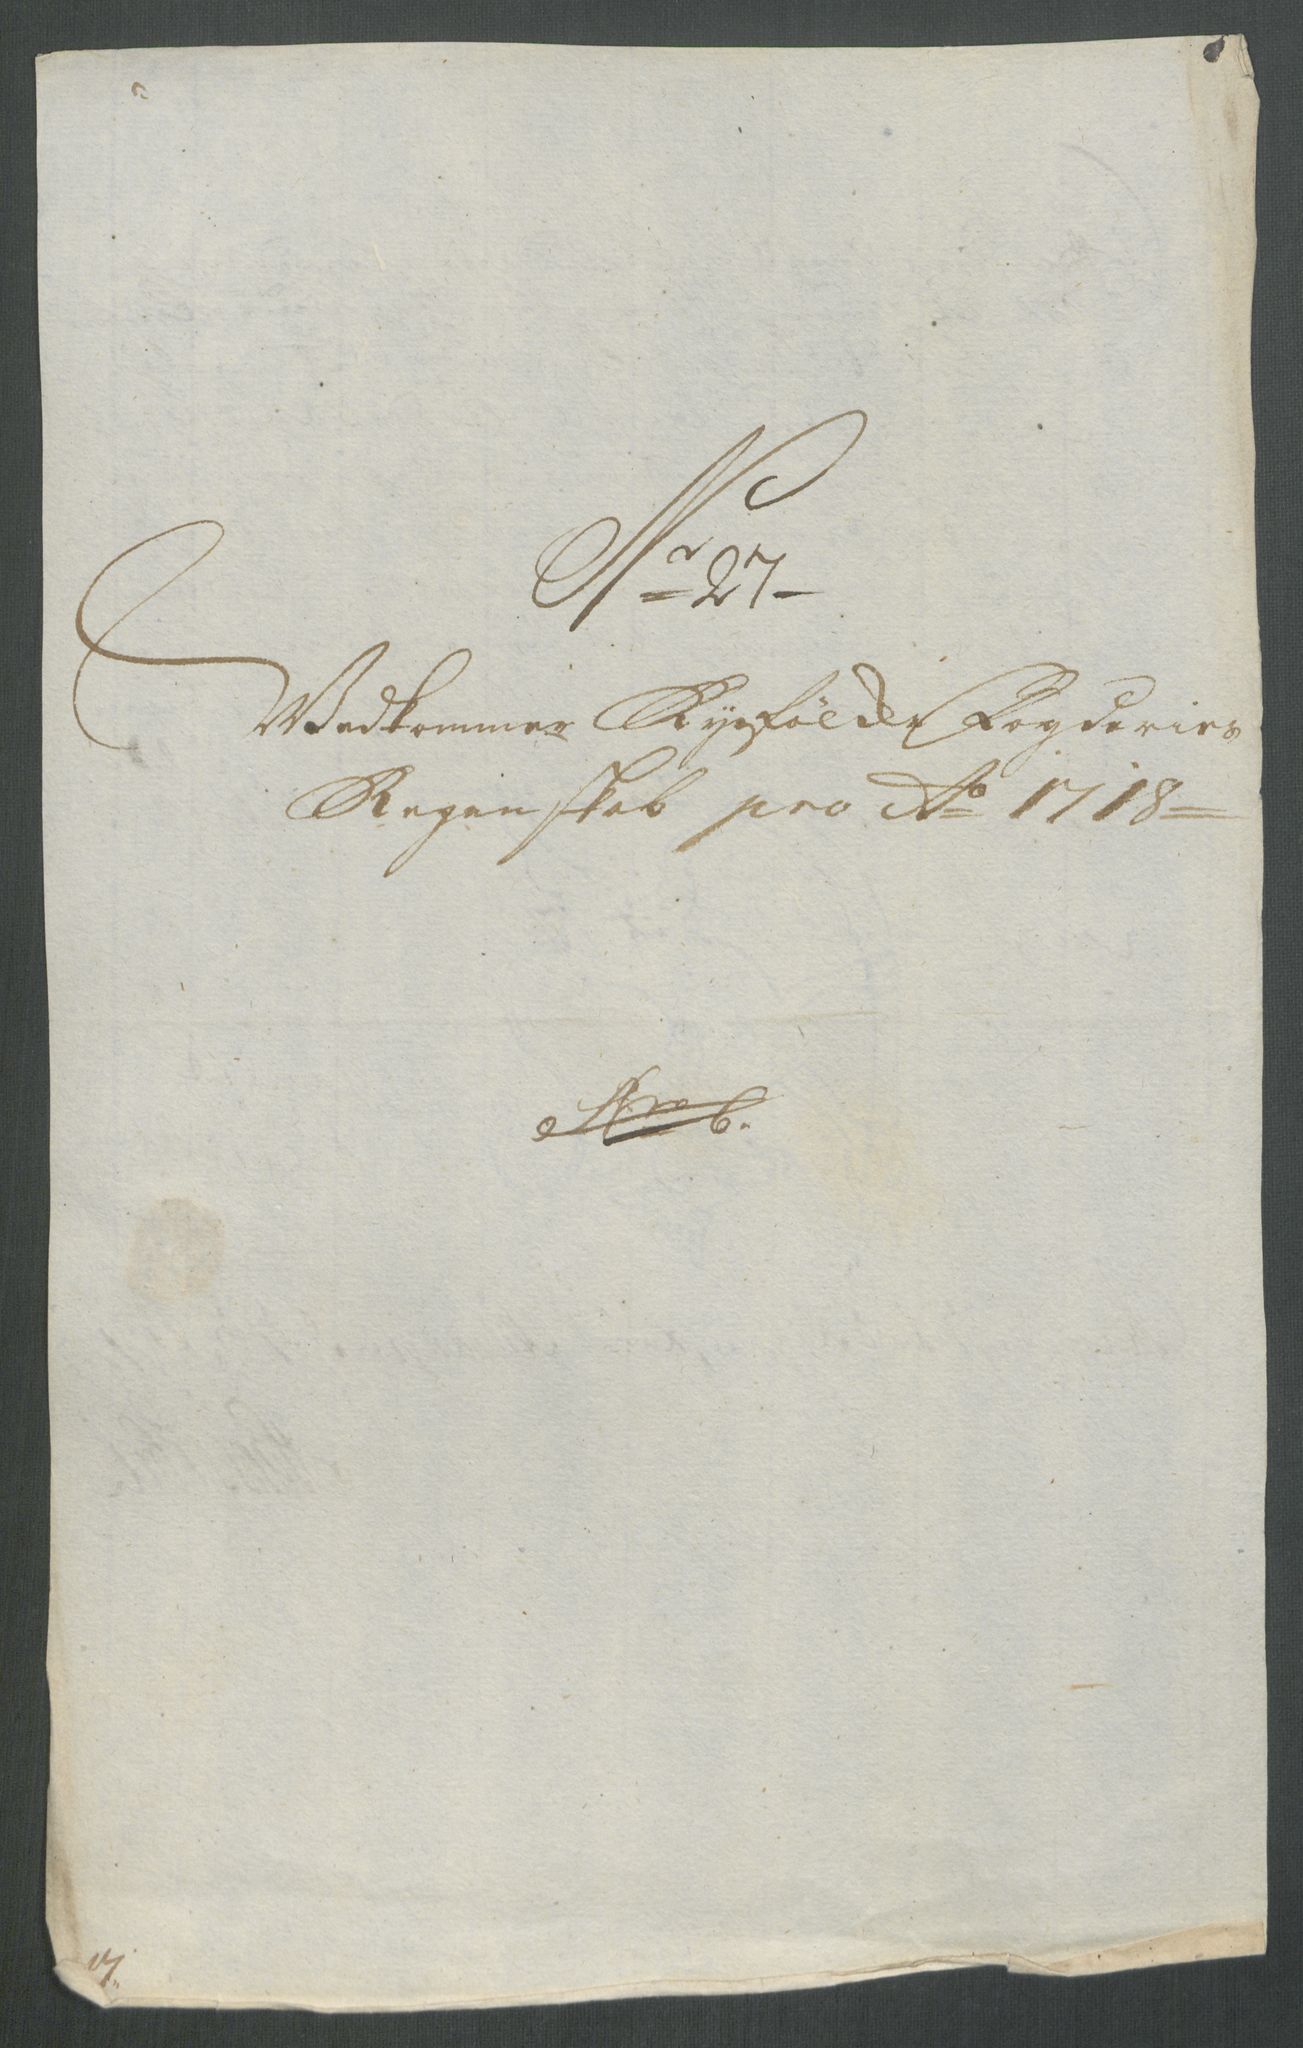 Nr 27
Vedkommer Ryefölcke Fogderies
Regenskab pro Ao 1718
17.